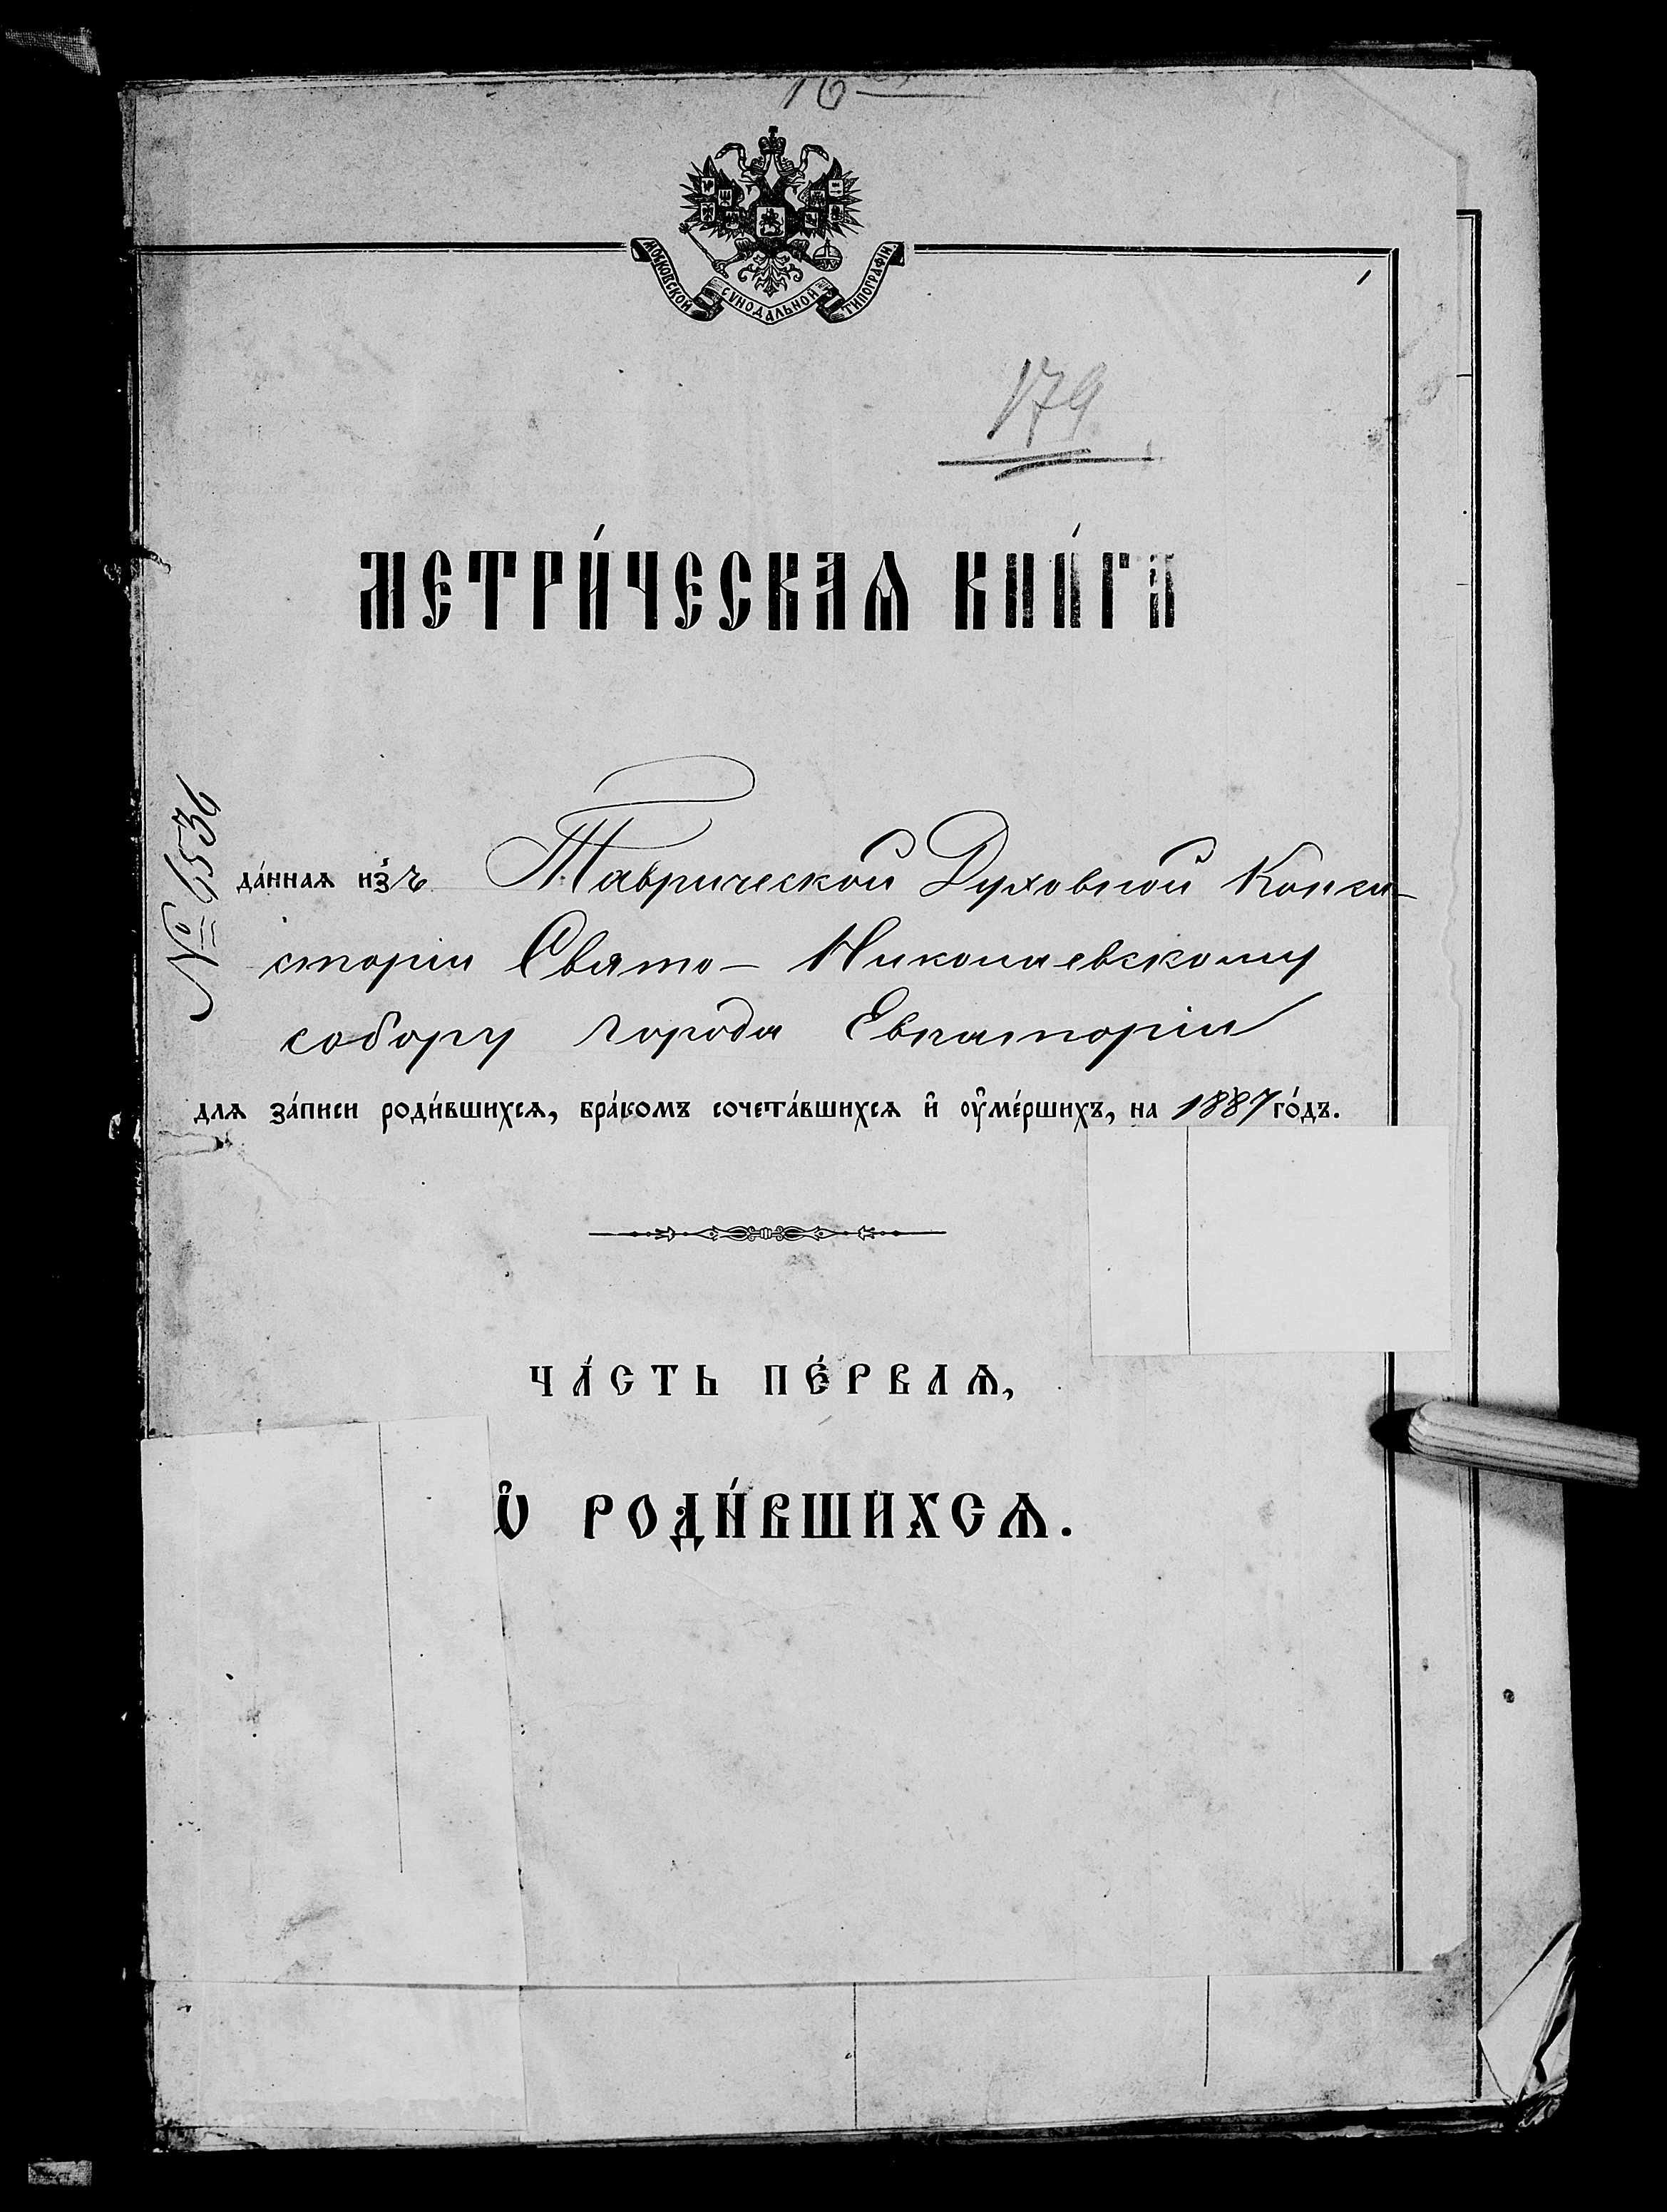 16
МОСКОВСКОЙ СѴНОДАЛЬНОЙ ТИПОГРАФІИ.
179
МЕТРИ́ЧЕСКАѦ КНИ́ГА
№ 6536
да́ннаѧ и҆зъ Таврической Духовной Конси-
сторіи Свято-Николаевскому
собору города Евпаторіи
длѧ за́писи роди́вшихсѧ, бра́комъ сочета́вшихсѧ и҆ ᲂу҆ме́ршихъ, на 1887 го́дъ.
ЧА́СТЬ ПЕ́РВАѦ,
Ѽ РОДИ́ВШИХСѦ.